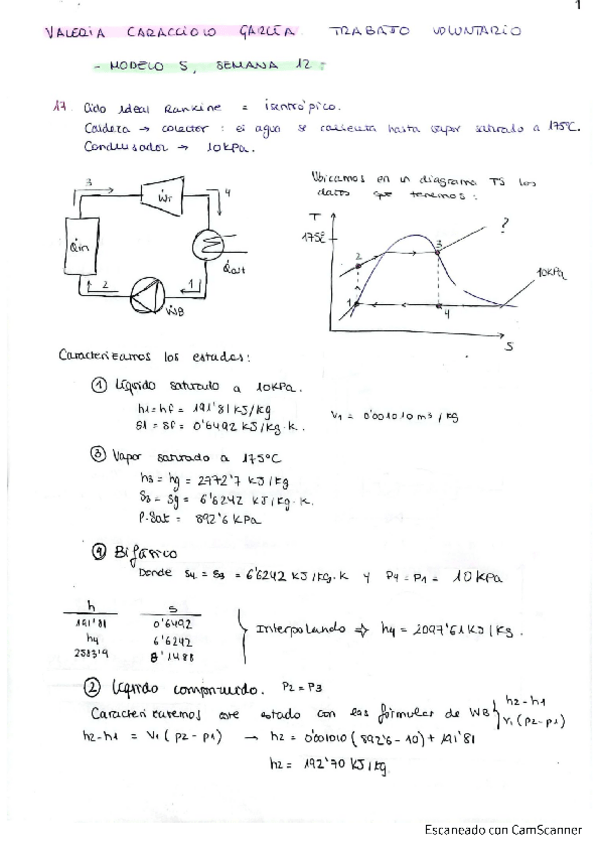 1
VALERIA CARACCIOLO GARCÍA. TRABAJO VOLUNTARIO
- MODELO 5, SEMANA 12:
17. Ciclo ideal Rankine = isentrópico.
Caldera → colector: el agua se calienta hasta vapor saturado a 175ºC.
Condensador → 10kPa.
Ubicamos en un diagrama TS los
datos que tenemos:
3
ẆT
4
Q̇in
Q̇out
2
1
ẆB
T
175º
?
2
3
10kPa
1
4
S
Caracterizamos los estados:
① Líquido saturado a 10kPa.
h1=hf = 191'81 KJ/Kg
S1 = Sf = 0'6492 KJ/Kg·K.
V1 = 0'001010 m3/kg
③ Vapor saturado a 175ºC
h3 = hg = 2772'7 KJ/Kg
S3 = Sg = 6'6242 KJ/Kg·K.
P.Sat = 892'6 KPa
④ Bifásico
Donde S4 = S3 = 6'6242 KJ/Kg·K y P4 = P1 = 10kPa
h S
191'81 0'6492
h4 6'6242
2583'9 8'1488
Interpolando ⇒ h4 = 2097'61 KJ/Kg.
② Líquido comprimido. P2 = P3
Caracterizaremos este estado con las fórmulas de WB
h2-h1
V1(P2-P1)
h2-h1 = V1(P2-P1) → h2 = 0'001010(892'6-10)+191'81
h2 = 192'70 KJ/Kg.
Escaneado con CamScanner